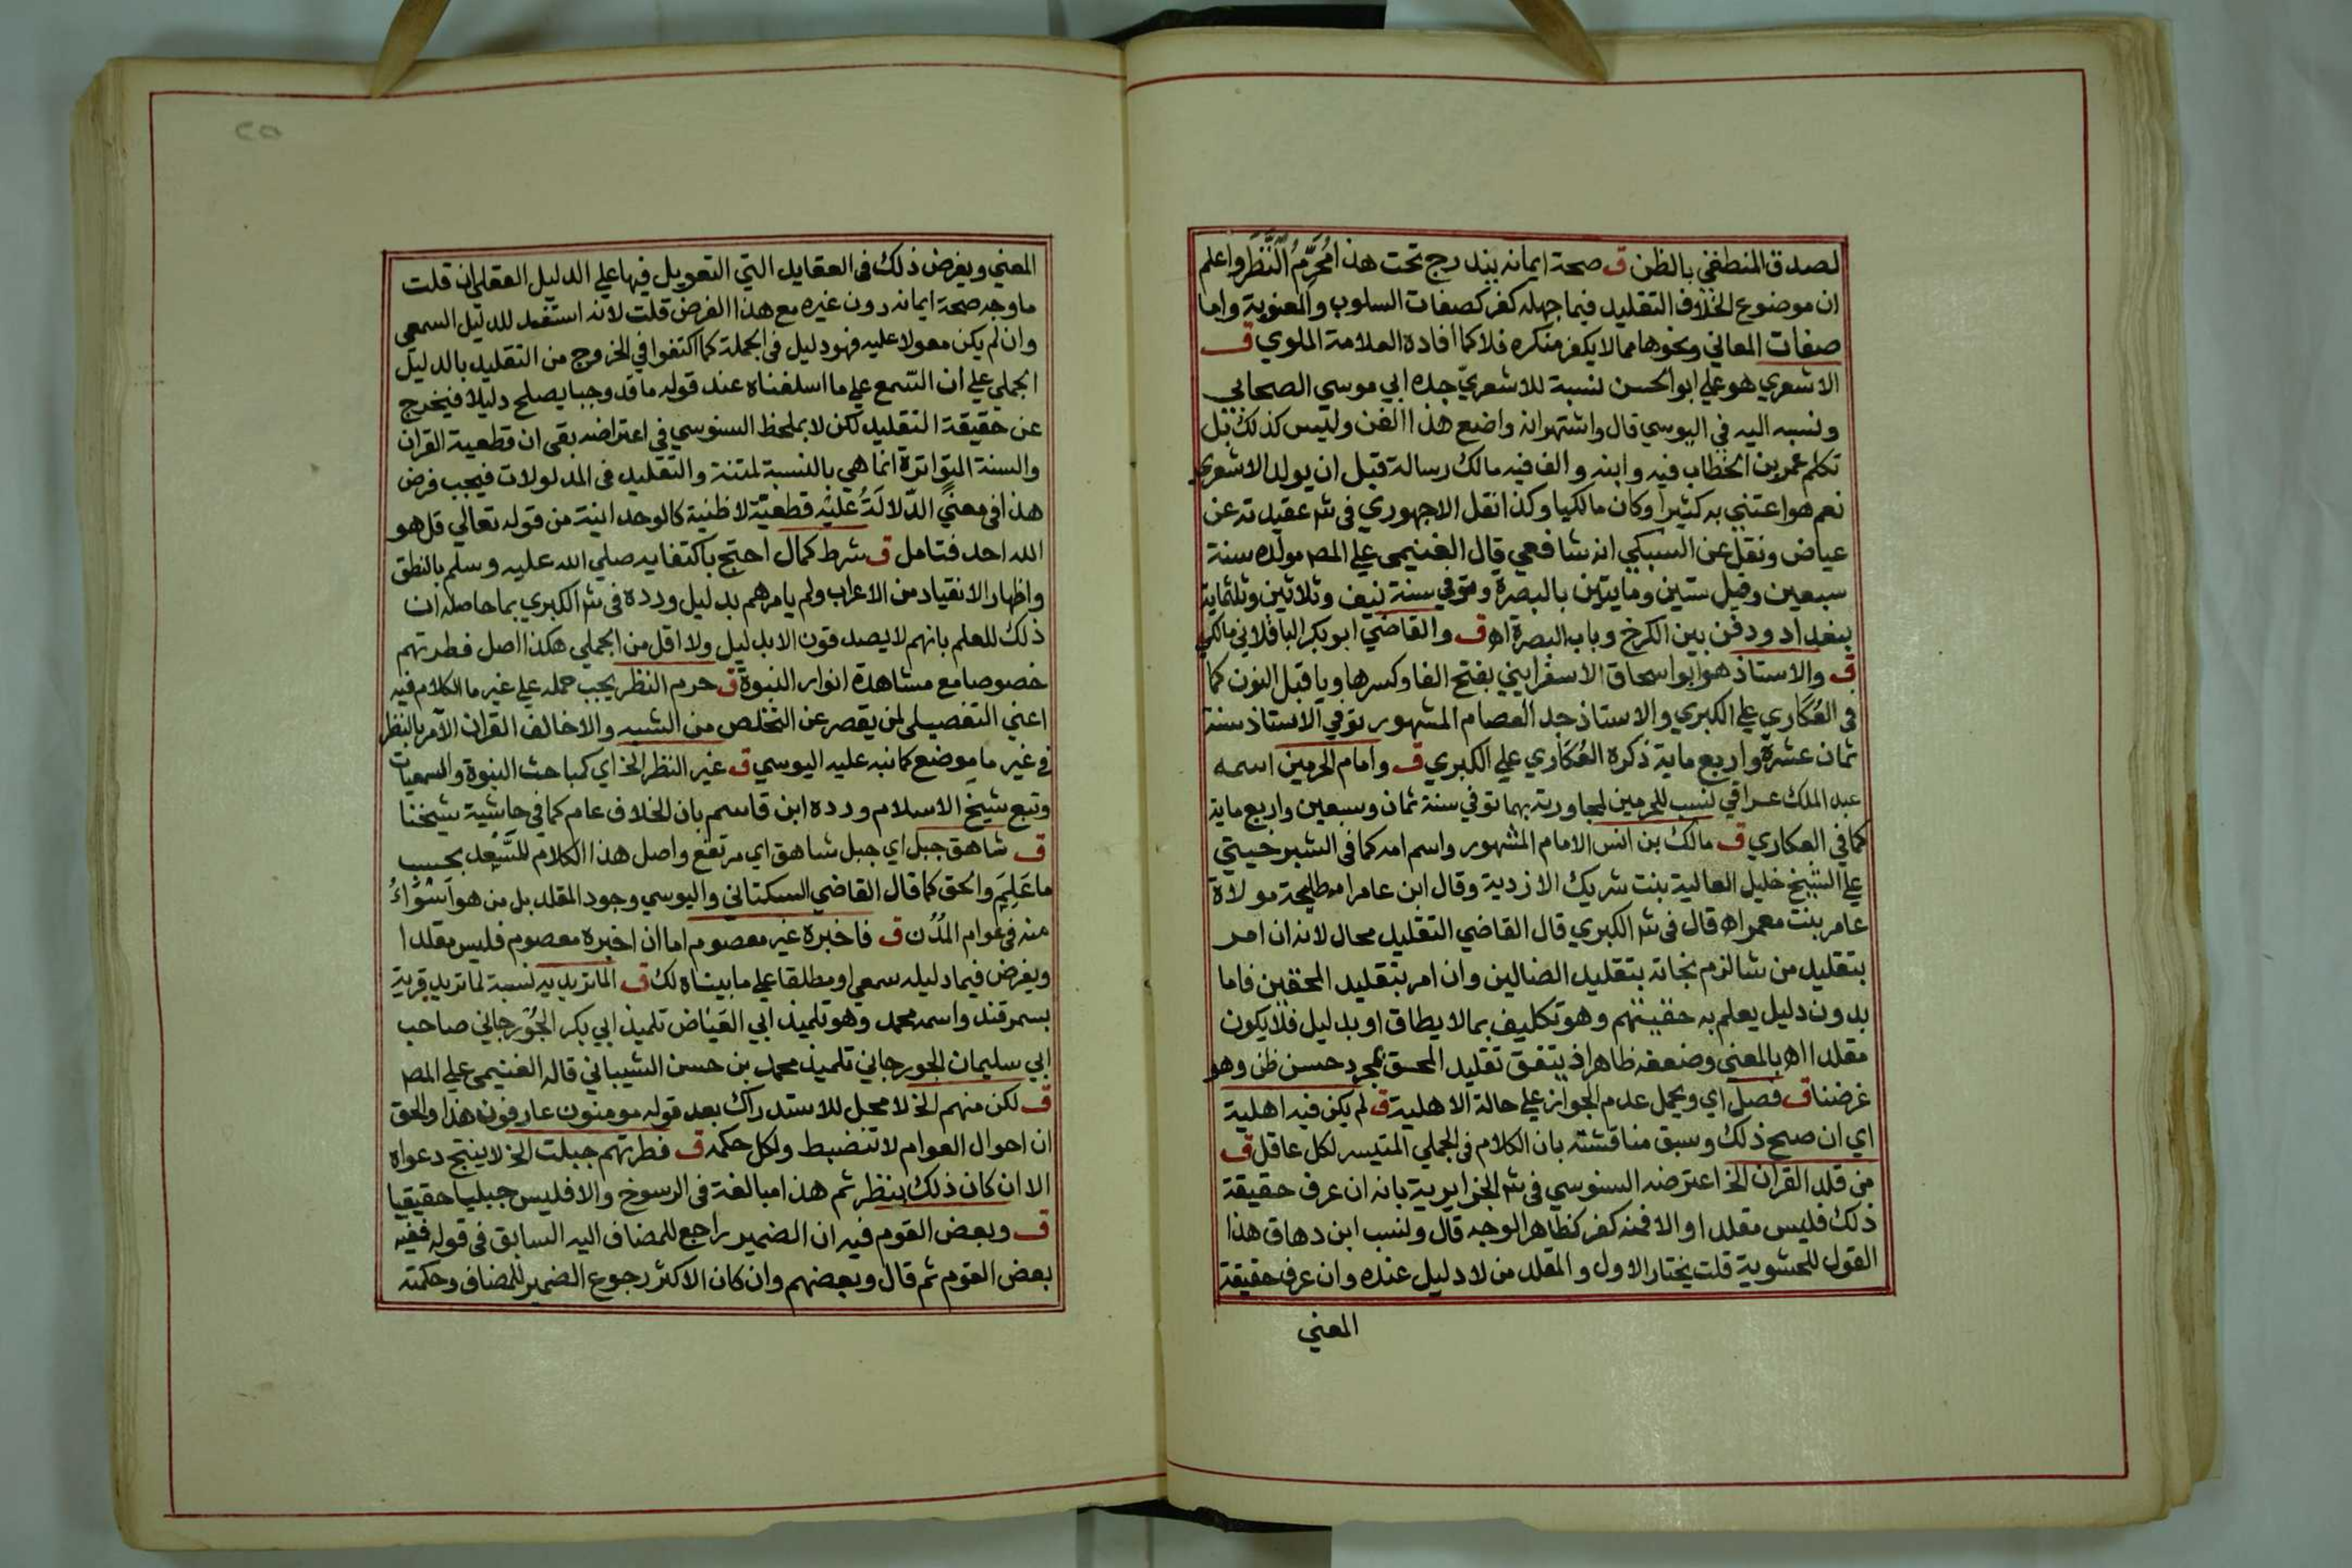 لصدق المنطقي بالظن ق صحة ايمانه يندرج تحت هذا مُحَرِّمُ النَّظَرِ واعلم
ان موضوع الخلاف التقليد فيما جهله كفر كصفات السلوب والمعنوية واما
صفات المعاني ونحوها مما لا يكفر منكره فلا كما افاده العلامة الملوي ق
الاشعري هو علي ابو الحسن نسبة للاشعري جده ابي موسي الصحابي
ونسبه اليه في اليوسي قال واشتهر انه واضع هذا الفن وليس كذلك بل
تكلم عمر بن الخطاب فيه وابنه والف فيه مالك رسالة قبل ان يولد الاشعري
نعم هو اعتني به كثيرا وكان مالكيا وكذا نقل الاجهوري في شر عقيدته عن
عياض ونقل عن السبكي انه شافعي قال الغنيمي علي المصـ مولده سنة
سبعين وقيل ستين ومايتين بالبصرة وتوفي سنة نيف وثلاثين وثلثماية
ببغداد ودفن بين الكرخ وباب البصرة اهـ ق والقاضي ابو بكر الباقلاني مالكي
ق والاستاذ هو ابو اسحاق الاسفرايني بفتح الفا وكسرها ويا قبل النون كما
في العُكَاري علي الكبري والاستاذ جد العصام المشهور توفي الاستاذ سنة
ثمان عشرة واربع ماية ذكره العُكَاري علي الكبري ق وامام الحرمين اسمه
عبد الملك عراقي نسب للحرمين لمجاورته بهما توفي سنة ثمان وسبعين واربع ماية
كما في العكاري ق مالك بن انس الامام المشهور واسم امه كما في الشبرخيتي
علي الشيخ خليل العالية بنت شريك الازدية وقال ابن عامر امه طليحة مولاة
عامر بنت معمر اهـ قال في شر الكبري قال القاضي التقليد محال لانه ان امر
بتقليد من شا لزم نجاته بتقليد الضالين وان امر بتقليد المحقين فاما
بدون دليل يعلم به حقيتهم وهو تكليف بما لا يطاق او بدليل فلا يكون
مقلدا اهـ بالمعني وضعفه ظاهر اذ يتفق تقليد المحق بمجرد حسن ظن وهو
غرضنا ق فصل اي ويحمل عدم الجواز علي حالة الاهلية ق لم يكن فيه اهلية
اي ان صح ذلك وسبق مناقشته بان الكلام في الجملي المتيسر لكل عاقل ق
من قلد القران الخ اعترضه السنوسي في شر الجزايرية بانه ان عرف حقيقة
ذلك فليس مقلدا والا فمنه كفر كظاهر الوجه قال ولنسب ابن دهاق هذا
القول للحشوية قلت يختار الاول والمقلد من لا دليل عنده وان عرف حقيقة
المعني
٢٥
المعني ويفرض ذلك في العقايد التي التعويل فيها علي الدليل العقلي ان قلت
ما وجه صحة ايمانه دون غيره مع هذا الفرض قلت لانه استند للدليل السمعي
وان لم يكن معولا عليه فهو دليل في الجملة كما اكتفوا في الخروج من التقليد بالدليل
الجملي علي ان السمع علي ما اسلفناه عند قوله ما قد وجبا يصلح دليلا فيخرج
عن حقيقة التقليد لكن لا بملحظ السنوسي في اعتراضه بقي ان قطعية القران
والسنة المتواترة انما هي بالنسبة لمتنة والتقليد في المدلولات فيجب فرض
هذا في معنًي الدّلالَةُ عليْه قطعيّة لا ظنية كالوحدانية من قوله تعالي قل هو
الله احد فتامل ق شرط كمال احتج باكتفايه صلي الله عليه وسلم بالنطق
واظهار الانقياد من الاعراب ولم يامرهم بدليل ورده في شر الكبري بما حاصله ان
ذلك للعلم بانهم لا يصدقون الا بدليل ولا اقل من الجملي هكذا اصل فطرتهم
خصوصا مع مشاهدة انوار النبوة ق حرم النظر يجب حمله علي غير ما الكلام فيه
اعني التفصيلي لمن يقصر عن التخلص من الشبه والا خالف القران الآمر بالنظر
في غير ما موضع كما نبه عليه اليوسي ق غير النظر الخ اي كمباحث النبوة والسمعيات
وتبع شيخ الاسلام ورده ابن قاسم بان الخلاف عام كما في حاشية شيخنا
ق شاهق جبل اي جبل شاهق اي مرتفع واصل هذا الكلام للسَّعْد بحسب
ما عَلِمَ والحق كما قال القاضي السكتاني واليوسي وجود المقلد بل من هو اسْوَاءُ
منه في عوام المُدُن ق فاخبره غير معصوم اما ان اخبره معصوم فليس مقلدا
ويفرض فيما دليله سمعي او مطلقا علي ما بيناه لك ق الماتريديه نسبة لماتريد قرية
بسمرقند واسمه محمد وهو تلميذ ابي العَيَاض تلميذ ابي بكر الجُوْرجاني صاحب
ابي سليمان الجورجاني تلميذ محمد بن حسن الشيباني قاله الغنيمي علي المصـ
ق لكن منهم الخ لا محل للاستدراك بعد قوله مومنون عارفون هذا والحق
ان احوال العوام لا تنضبط ولكل حكمه ق فطرتهم جبلت الخ لا ينتج دعواه
الا ان كان ذلك بنظر ثم هذا مبالغة في الرسوخ والا فليس جبليا حقيقيا
ق وبعض القوم فيه ان الضمير راجع للمضاف اليه السابق في قوله ففيه
بعض القوم ثم قال وبعضهم وان كان الاكثر رجوع الضمير للمضاف وحكمته